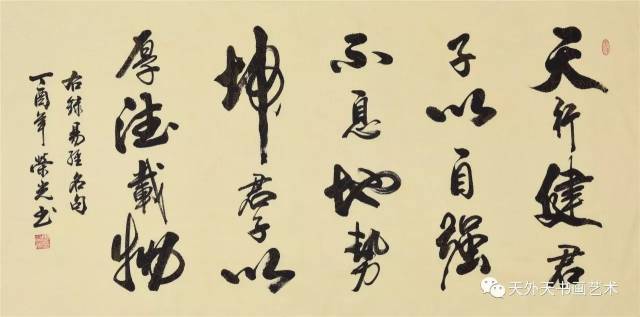 天行健君
子以自强
不息地势
坤君子以
厚德载物
右录易经名句
丁酉年荣光书
天外天书画艺术